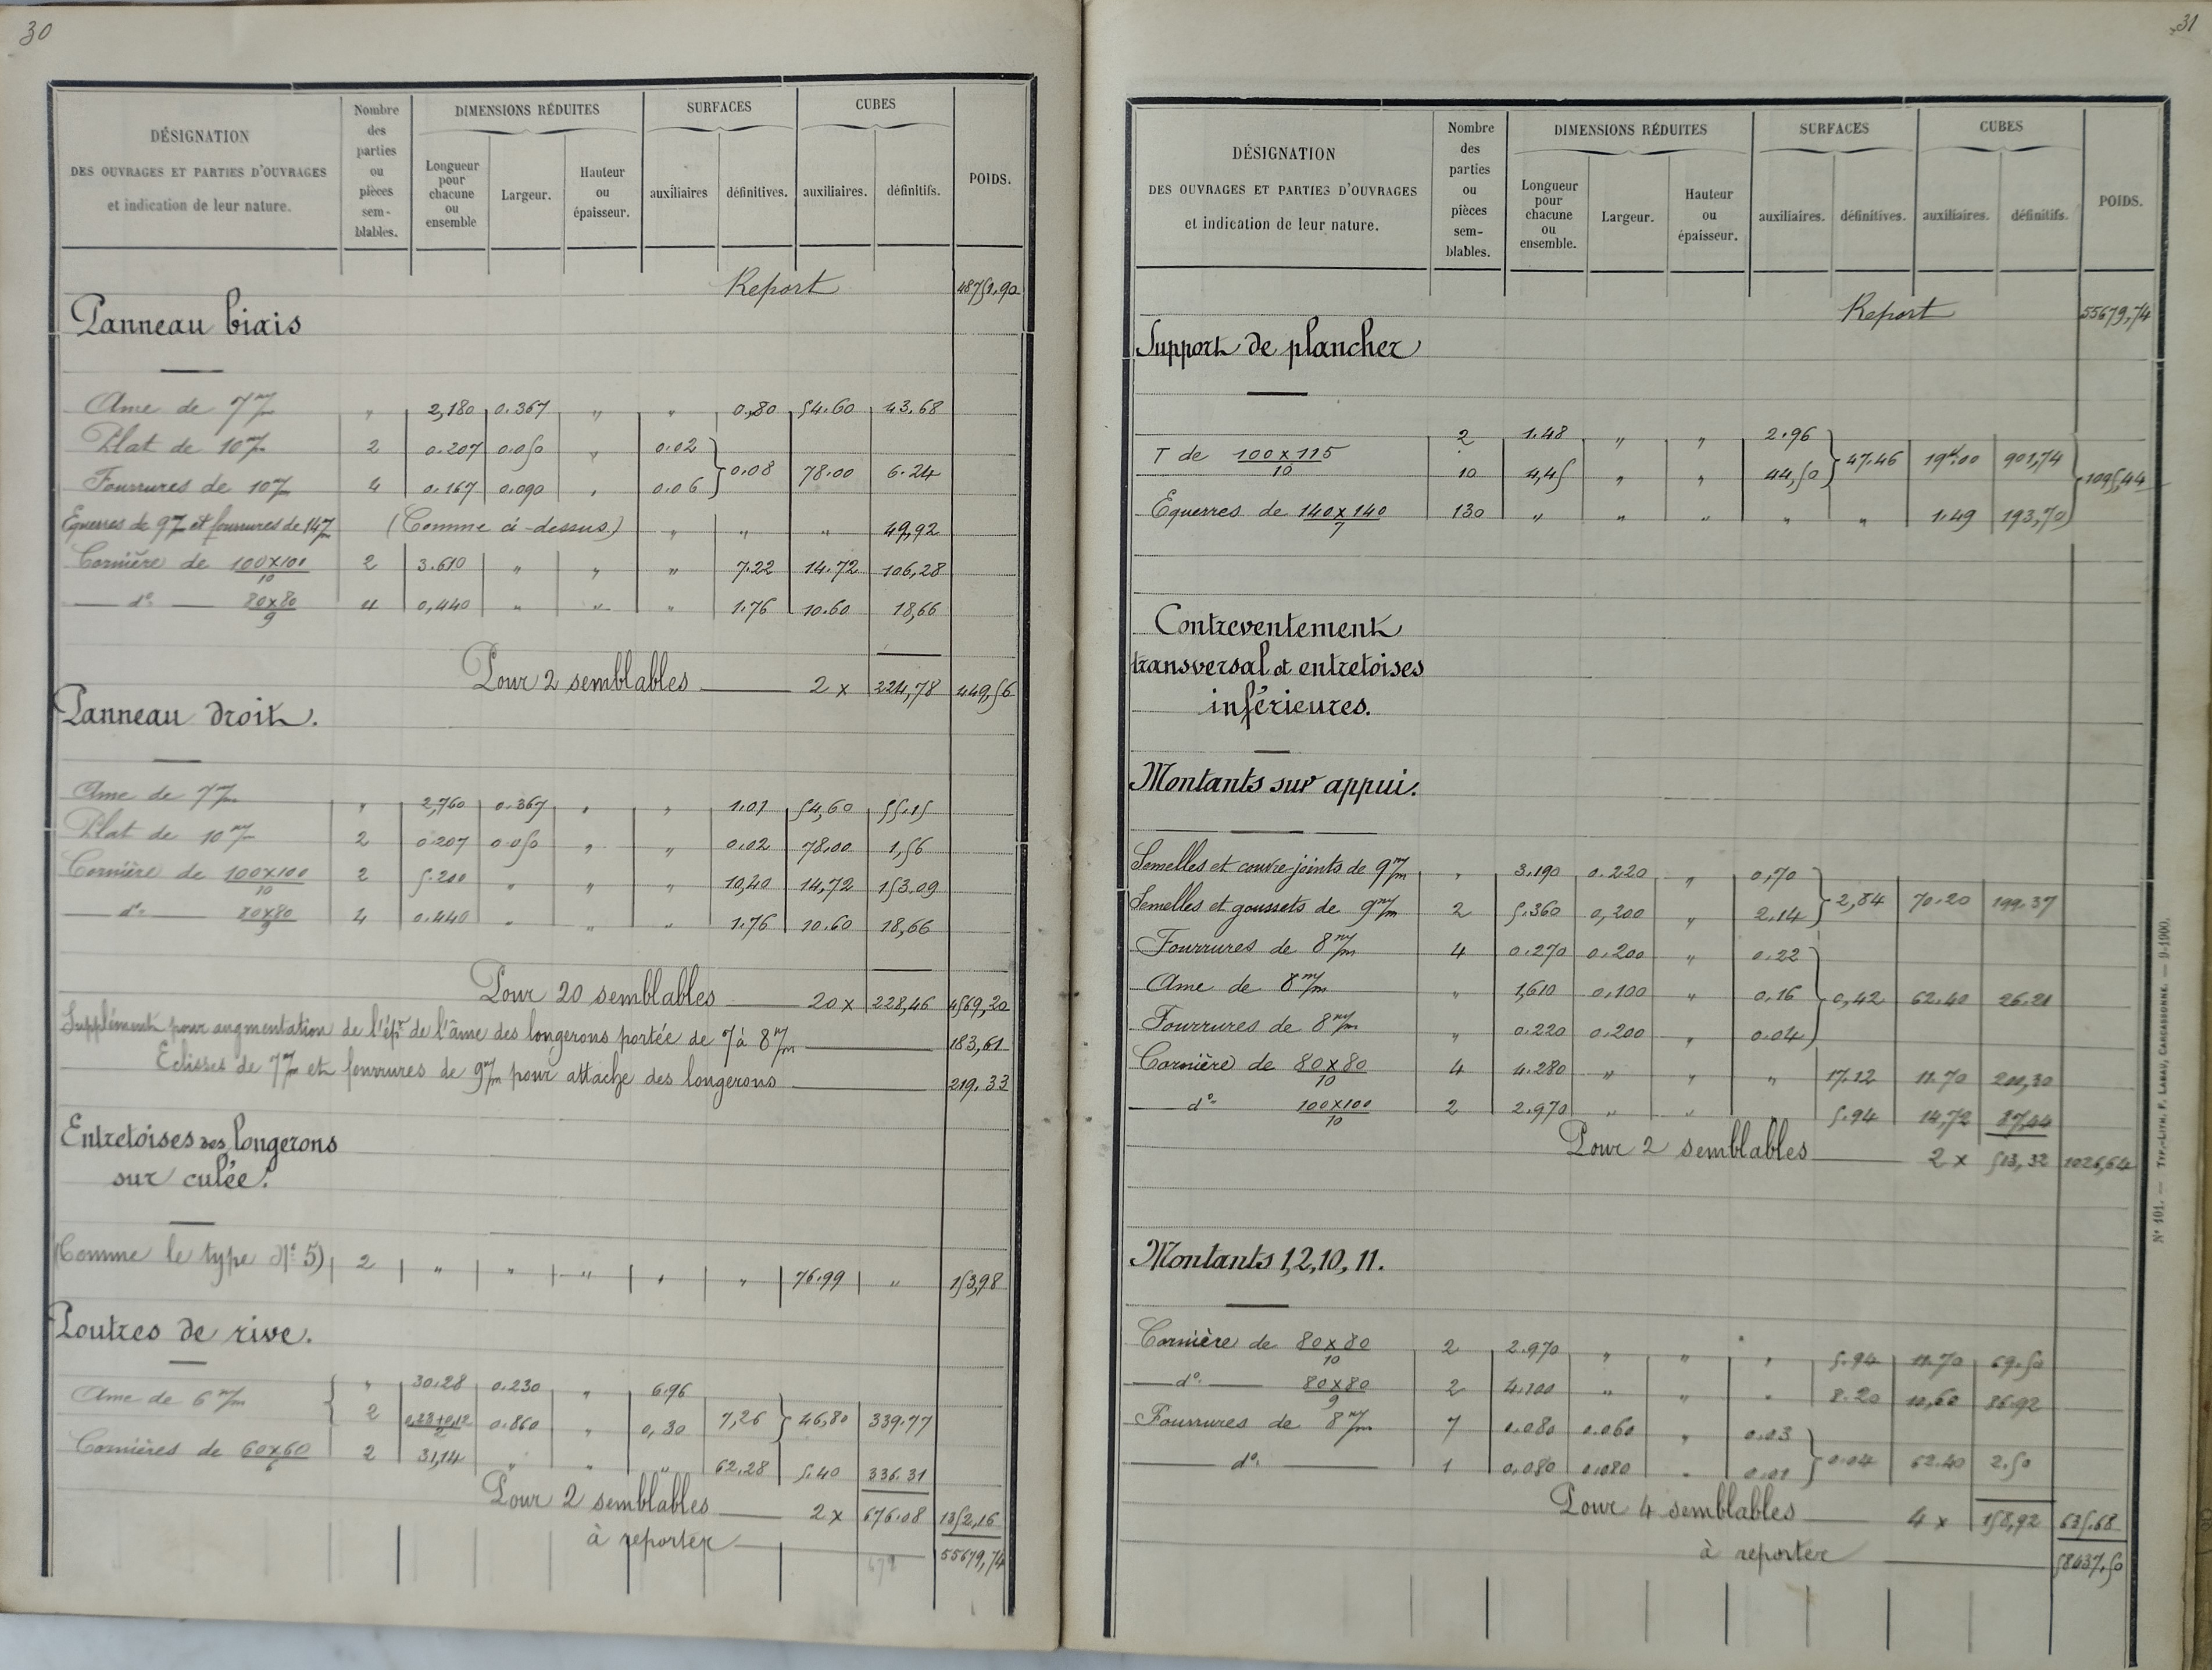 30
DÉSIGNATION
DES OUVRAGES ET PARTIES D'OUVRAGES
et indication de leur nature.
Nombre des parties ou pièces sem-blables.
DIMENSIONS RÉDUITES
Longueur pour chacune ou ensemble
Largeur.
Hauteur ou épaisseur.
SURFACES
auxiliaires
définitives.
CUBES
auxiliaires.
définitifs.
POIDS.
Report 48751.90
Panneau biais
Ame de 7 m/m " 2,180 0.367 " " 0,80 54.60 43.68
Plat de 10 m/m 2 0.207 0.050 " 0.02
0.08 78.00 6.24
Fourrures de 10 m/m 4 0.167 0.090 " 0.06
Equerres de 9 m/m et fourrures de 14 m/m (Comme ci-dessus) " " " 49,92
Cornière de 100x100/10 2 3.610 " " " 7.22 14.72 106,28
d° 80x80/9 4 0,440 " " " 1.76 10.60 18,66
Pour 2 semblables 2 x 224,78 449,56
Panneau droit.
Ame de 7 m/m " 2,760 0.367 " " 1.01 54,60 55.15
Plat de 10 m/m 2 0.207 0.050 " " 0.02 78.00 1,56
Cornière de 100x100/10 2 5.200 " " " 10,40 14,72 153.09
d° 80x80/9 4 0.440 " " " 1.76 10.60 18,66
Pour 20 semblables 20 x 228,46 4569,20
Supplément pour augmentation de l'épr de l'âme des longerons portée de 7 à 8 m/m 183,61
Eclisses de 7 m/m et fourrures de 9 m/m pour attache des longerons 219.33
Entretoises des longerons
sur culée.
(Comme le type N° 5) 2 " " " " " 76.99 " 153,98
Poutres de rive.
Ame de 6 m/m " 30.28 0.230 " 6.96
2 0.860 " 0,30 7,26 46,80 339.77
Cornières de 60x60/6 2 31,14 " " " 62.28 5.40 336.31
Pour 2 semblables 2 x 676.08 1352,16
à reporter 55679,74
31
DÉSIGNATION
DES OUVRAGES ET PARTIES D'OUVRAGES
et indication de leur nature.
Nombre des parties ou pièces sem-blables.
DIMENSIONS RÉDUITES
Longueur pour chacune ou ensemble.
Largeur.
Hauteur ou épaisseur.
SURFACES
auxiliaires.
définitives.
CUBES
auxiliaires.
définitifs.
POIDS.
Report 55679,74
Support de plancher
2 1.48 " " 2.96
T de 100x115/10 10 4,45 " " 44,50 47.46 19k.00 901,74
1095,44
Equerres de 140x140/7 130 " " " " " 1.49 193,70
Contreventement
transversal et entretoises
inférieures.
Montants sur appui.
Semelles et couvre-joints de 9 m/m " 3.190 0.220 " 0,70
Semelles et goussets de 9 m/m 2 5.360 0,200 " 2.14 2,84 70.20 199.37
Fourrures de 8 m/m 4 0.270 0.200 " 0.22
Ame de 8 m/m " 1,610 0,100 " 0,16 0,42 62.40 26.21
Fourrures de 8 m/m " 0.220 0.200 " 0.04
Cornière de 80x80/10 4 4.280 " " " 17.12 11.70 200,30
d° 100x100/10 2 2.970 " " 5.94 14,72 87,44
Pour 2 semblables 2 x 513,32 1026,64
Montants 1,2,10,11.
Cornière de 80x80/10 2 2.970 " " " 5.94 11.70 69.50
d° 80x80/9 2 4.100 " " " 8.20 10,60 86.92
Fourrures de 8 m/m 7 0.080 0.060 " 0.03
d° 1 0,080 0.080 " 0.01 0.04 62.40 2.50
Pour 4 semblables 4 x 158,92 635.68
à reporter 58437,50
N° 101. — TYP.-LITH. F. LABAU, CARCASSONNE. — 9-1900.